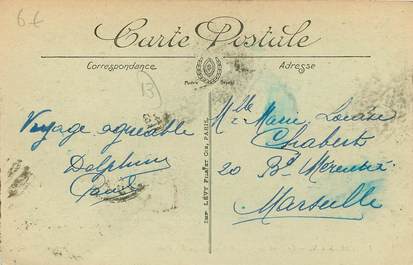 6€
Carte Postale
Correspondance
Adresse
13
Voyage agréable
Delphine
Mlle Marie Louise
Chabert
20 Bd
Marseille
IMP. LÉVY FILS ET CIE, PARIS